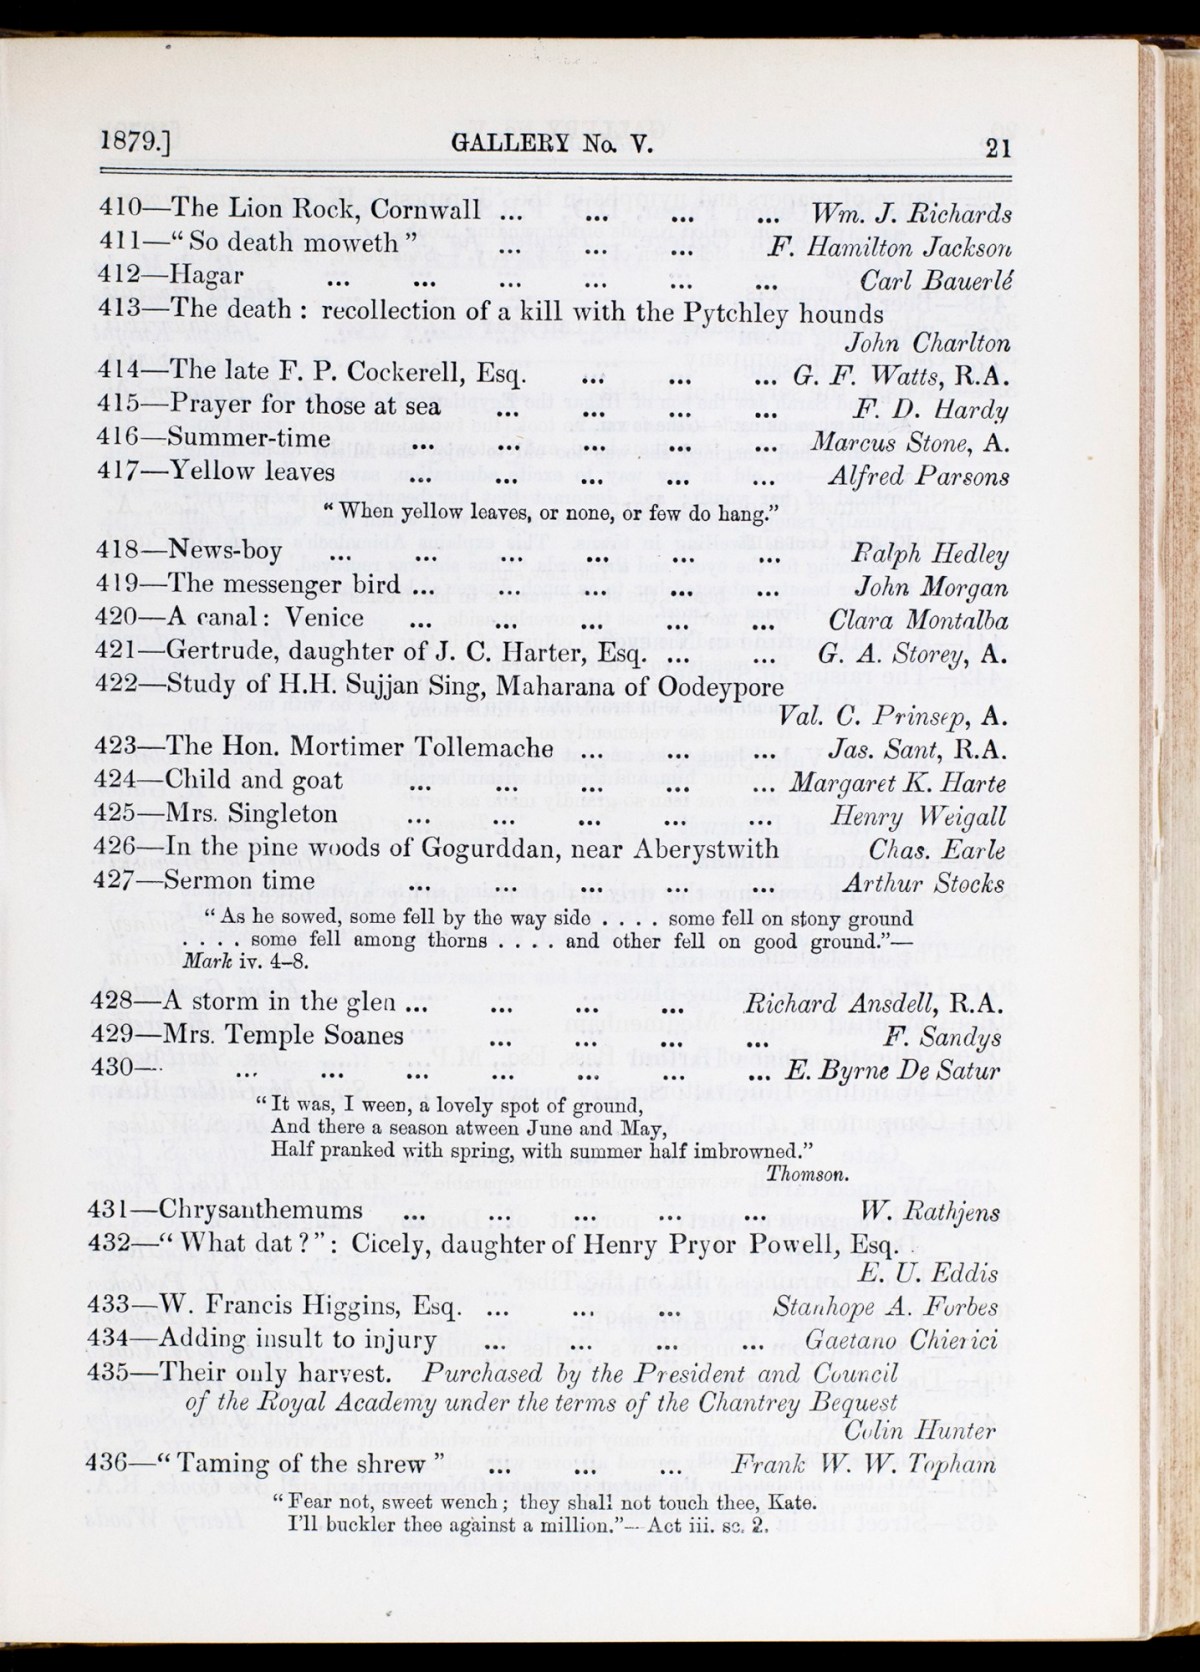 1879.] GALLERY No. V. 21
410—The Lion Rock, Cornwall ... ... ... ... Wm. J. Richards
411—“So death moweth” ... ... ... F. Hamilton Jackson
412—Hagar ... ... ... ... ... ... Carl Bauerlé
413—The death : recollection of a kill with the Pytchley hounds
John Charlton
414—The late F. P. Cockerell, Esq. ... ... ... G. F. Watts, R.A.
415—Prayer for those at sea ... ... ... ... F. D. Hardy
416—Summer-time ... ... ... ... ... Marcus Stone, A.
417—Yellow leaves ... ... ... ... ... Alfred Parsons
“When yellow leaves, or none, or few do hang.”
418—News-boy ... ... ... ... ... ... Ralph Hedley
419—The messenger bird ... ... ... ... ... John Morgan
420—A canal : Venice ... ... ... ... ... Clara Montalba
421—Gertrude, daughter of J. C. Harter, Esq. ... ... G. A. Storey, A.
422—Study of H.H. Sujjan Sing, Maharana of Oodeypore
Val. C. Prinsep, A.
423—The Hon. Mortimer Tollemache ... ... ... Jas. Sant, R.A.
424—Child and goat ... ... ... ... ... Margaret K. Harte
425—Mrs. Singleton ... ... ... ... ... Henry Weigall
426—In the pine woods of Gogurddan, near Aberystwith Chas. Earle
427—Sermon time ... ... ... ... ... Arthur Stocks
“As he sowed, some fell by the way side . . . . . some fell on stony ground
. . . . some fell among thorns . . . . and other fell on good ground.”—
Mark iv. 4–8.
428—A storm in the glen ... ... ... ... Richard Ansdell, R.A.
429—Mrs. Temple Soanes ... ... ... ... F. Sandys
430— ... ... ... ... ... ... ... E. Byrne De Satur
“It was, I ween, a lovely spot of ground,
And there a season atween June and May,
Half pranked with spring, with summer half imbrowned.”
Thomson.
431—Chrysanthemums ... ... ... ... ... W. Rathjens
432—“What dat?” : Cicely, daughter of Henry Pryor Powell, Esq.
E. U. Eddis
433—W. Francis Higgins, Esq. ... ... ... Stanhope A. Forbes
434—Adding insult to injury ... ... ... ... Gaetano Chierici
435—Their only harvest. Purchased by the President and Council
of the Royal Academy under the terms of the Chantrey Bequest
Colin Hunter
436—“Taming of the shrew” ... ... ... Frank W. W. Topham
“Fear not, sweet wench ; they shall not touch thee, Kate.
I’ll buckler thee against a million.”—Act iii. sc. 2.